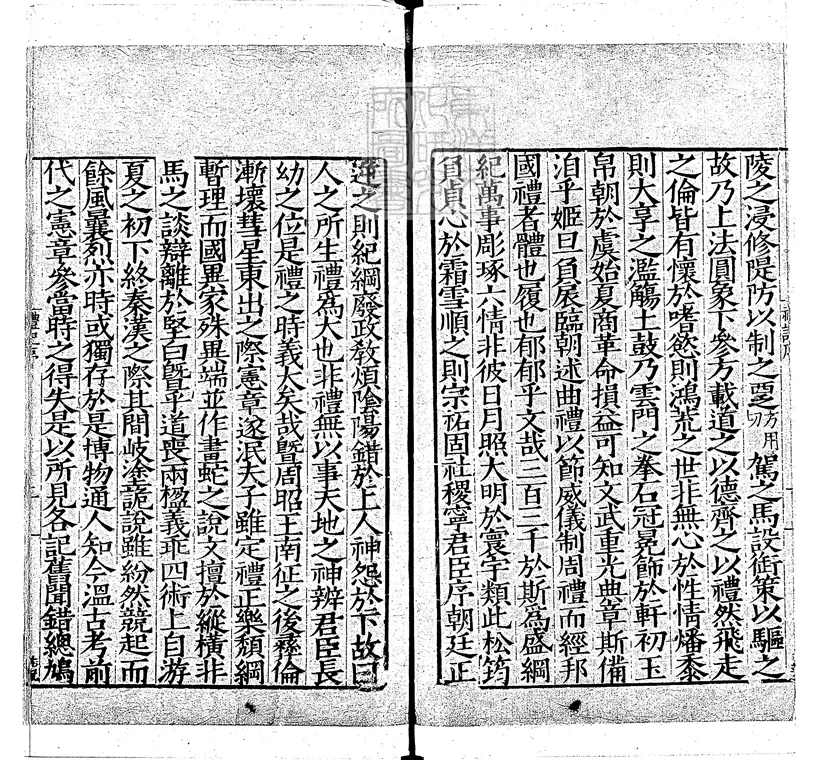 陵之浸修隄防以制之覂方用切駕之馬設銜策以驅之
故乃上法圓象下參方載道之以德齊之以禮然飛走
之倫皆有懷於嗜慾則鴻荒之世非無心於性情燔黍
則大享之濫觴土鼓乃雲門之拳石冠冕飾於軒初玉
帛朝於虞始夏商革命損益可知文武重光典章斯備
洎乎姬旦負扆臨朝述曲禮以節威儀制周禮而經邦
國禮者體也履也郁郁乎文哉三百三千於斯爲盛綱
紀萬事彫琢六情非彼日月照大明於寰宇類此松筠
負貞心於霜雪順之則宗祏固社稷寧君臣序朝廷正
逆之則紀綱廢政教煩陰陽錯於上人神怨於下故曰
人之所生禮爲大也非禮無以事天地之神辨君臣長
幼之位是禮之時義大矣哉暨周昭王南征之後彝倫
漸壞彗星東出之際憲章遂泯夫子雖定禮正樂頹綱
暫理而國異家殊異端並作畫蛇之說文擅於縱橫非
馬之談辯離於堅白暨乎道喪兩楹義乖四術上自游
夏之初下終秦漢之際其間岐塗詭說雖紛然競起而
餘風曩烈亦時或獨存於是博物通人知今溫古考前
代之憲章參當時之得失是以所見各記舊聞錯總鳩